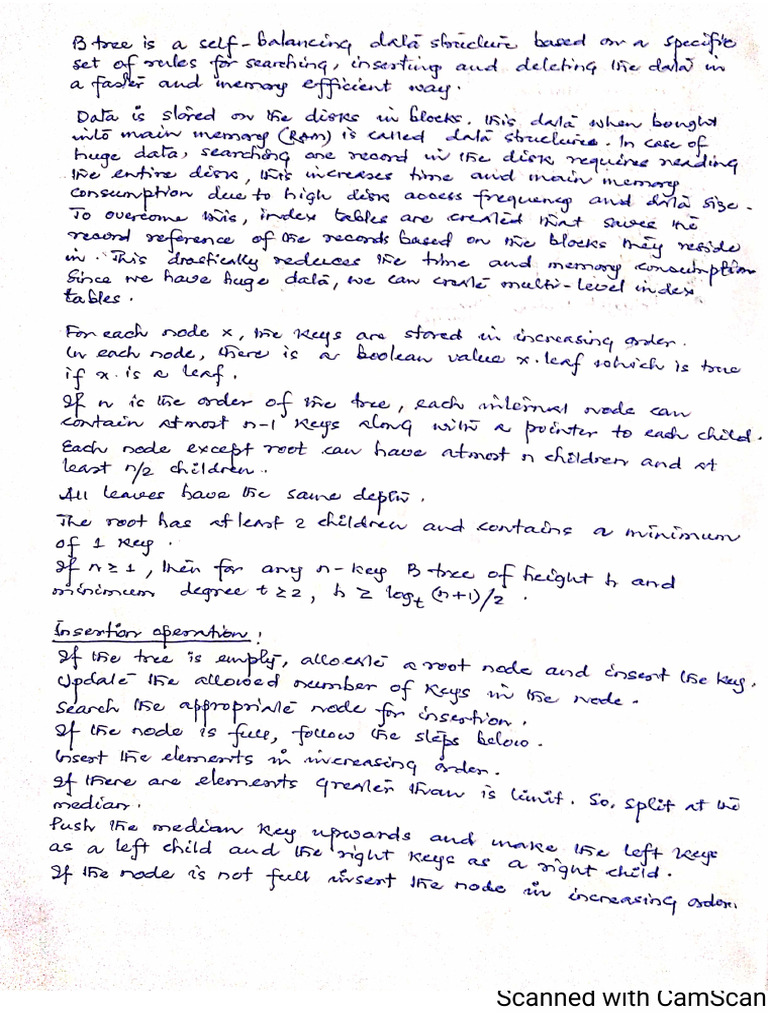 B tree is a self-balancing data structure based on a specific
set of rules for searching, inserting and deleting the data in
a faster and memory efficient way.
Data is stored on the disks in blocks. this data when bought
into main memory (RAM) is called data structure. In case of
huge data, searching one record in the disk requires reading
the entire disk, this increases time and main memory
consumption due to high disk access frequency and data size.
To overcome this, index tables are created that saves the
record reference of the records based on the blocks they reside
in. This drastically reduces the time and memory consumption
Since we have huge data, we can create multi-level index
tables.
For each node x, the keys are stored in increasing order.
In each node, there is a boolean value x.leaf which is true
if x is a leaf.
If n is the order of the tree, each internal node can
contain atmost n-1 keys along with a pointer to each child.
Each node except root can have atmost n children and at
least n/2 children.
All leaves have the same depth.
The root has atleast 2 children and contains a minimum
of 1 key.
If n ≥ 1, then for any n-key B tree of height h and
minimum degree t ≥ 2, h ≥ log_t (n+1)/2.
Insertion operation:
If the tree is empty, allocate a root node and insert the key.
Update the allowed number of keys in the node.
Search the appropriate node for insertion.
If the node is full, follow the steps below.
Insert the elements in increasing order.
If there are elements greater than is limit. So, split at the
median.
Push the median key upwards and make the left keys
as a left child and the right keys as a right child.
If the node is not full insert the node in increasing order.
Scanned with CamScan